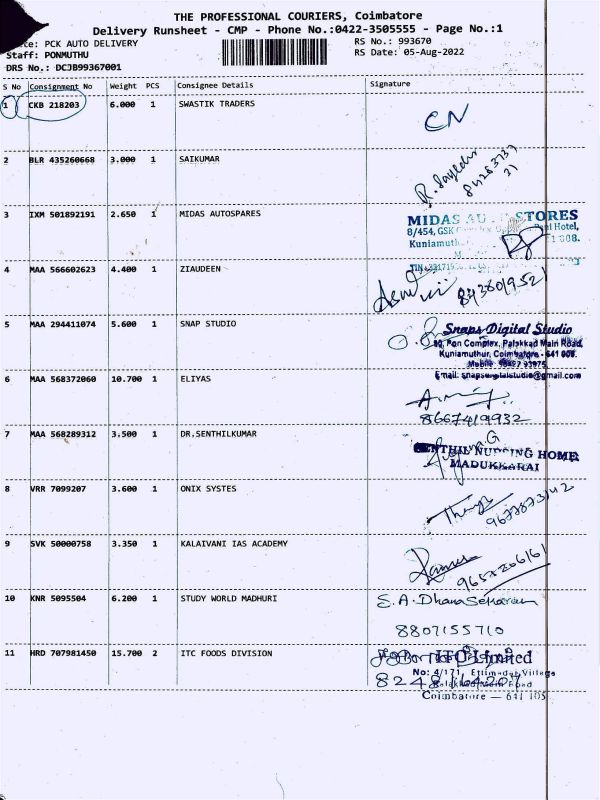 THE PROFESSIONAL COURIERS, Coimbatore
Delivery Runsheet - CMP - Phone No.:0422-3505555 - Page No.:1
te: PCK AUTO DELIVERY RS No.: 993670
Staff: PONMUTHU RS Date: 05-Aug-2022
DRS No.: DCJB99367001
S No Consignment No Weight PCS Consignee Details Signature
1 CKB 218203 6.000 1 SWASTIK TRADERS CN
2 BLR 435260668 3.000 1 SAIKUMAR
3 IXM 501892191 2.650 1 MIDAS AUTOSPARES
MIDAS AU STORES
8/454, GSK Hotel,
Kuniamuth
4 MAA 566602623 4.400 1 ZIAUDEEN
5 MAA 294411074 5.600 1 SNAP STUDIO
Snaps Digital Studio
80, Pon Complex, Palakkad Main Road,
Kuniamuthur, Coimbatore - 641 008.
Mobile: 98427 93975
E mail: snapsdigitalstudio@gmail.com
6 MAA 568372060 10.700 1 ELIYAS
8667419932
7 MAA 568289312 3.500 1 DR.SENTHILKUMAR
NURSING HOME
MADUKKARAI
8 VRR 7099207 3.600 1 ONIX SYSTES
9677873142
9 SVK 50000758 3.350 1 KALAIVANI IAS ACADEMY
9657266161
10 KNR 5095504 6.200 1 STUDY WORLD MADHURI
S.A. Dhana Sekaran
8807155710
11 HRD 707981450 15.700 2 ITC FOODS DIVISION
ITC Limited
No: 4/171, Ettimadai Village
Palakkad Main Road
Coimbatore — 641 105